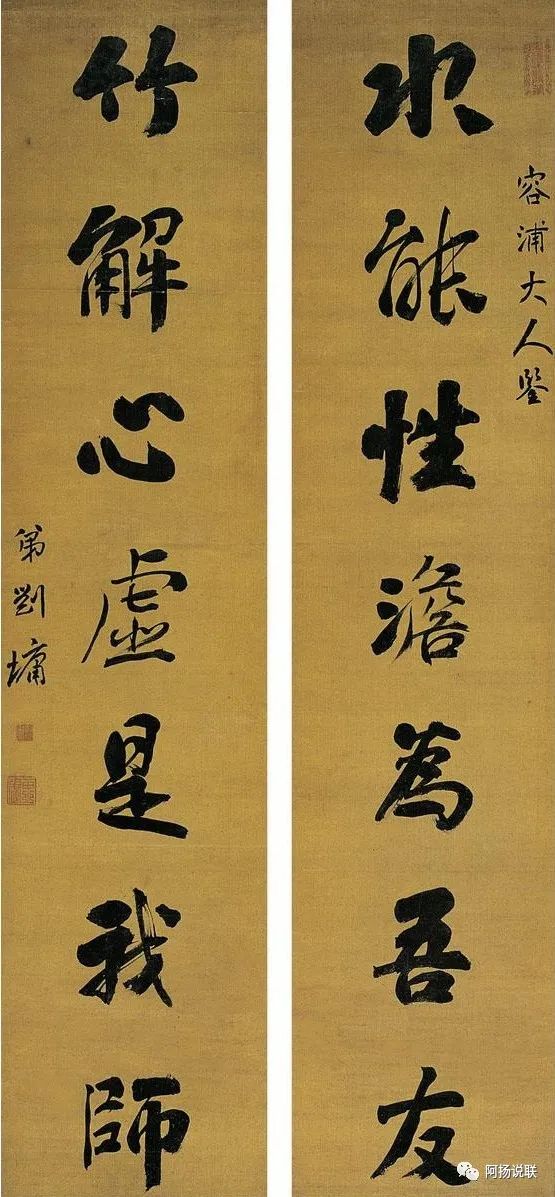 容浦大人鉴
水能性澹為吾友
竹解心虛是我師
弟劉墉
阿扬说联